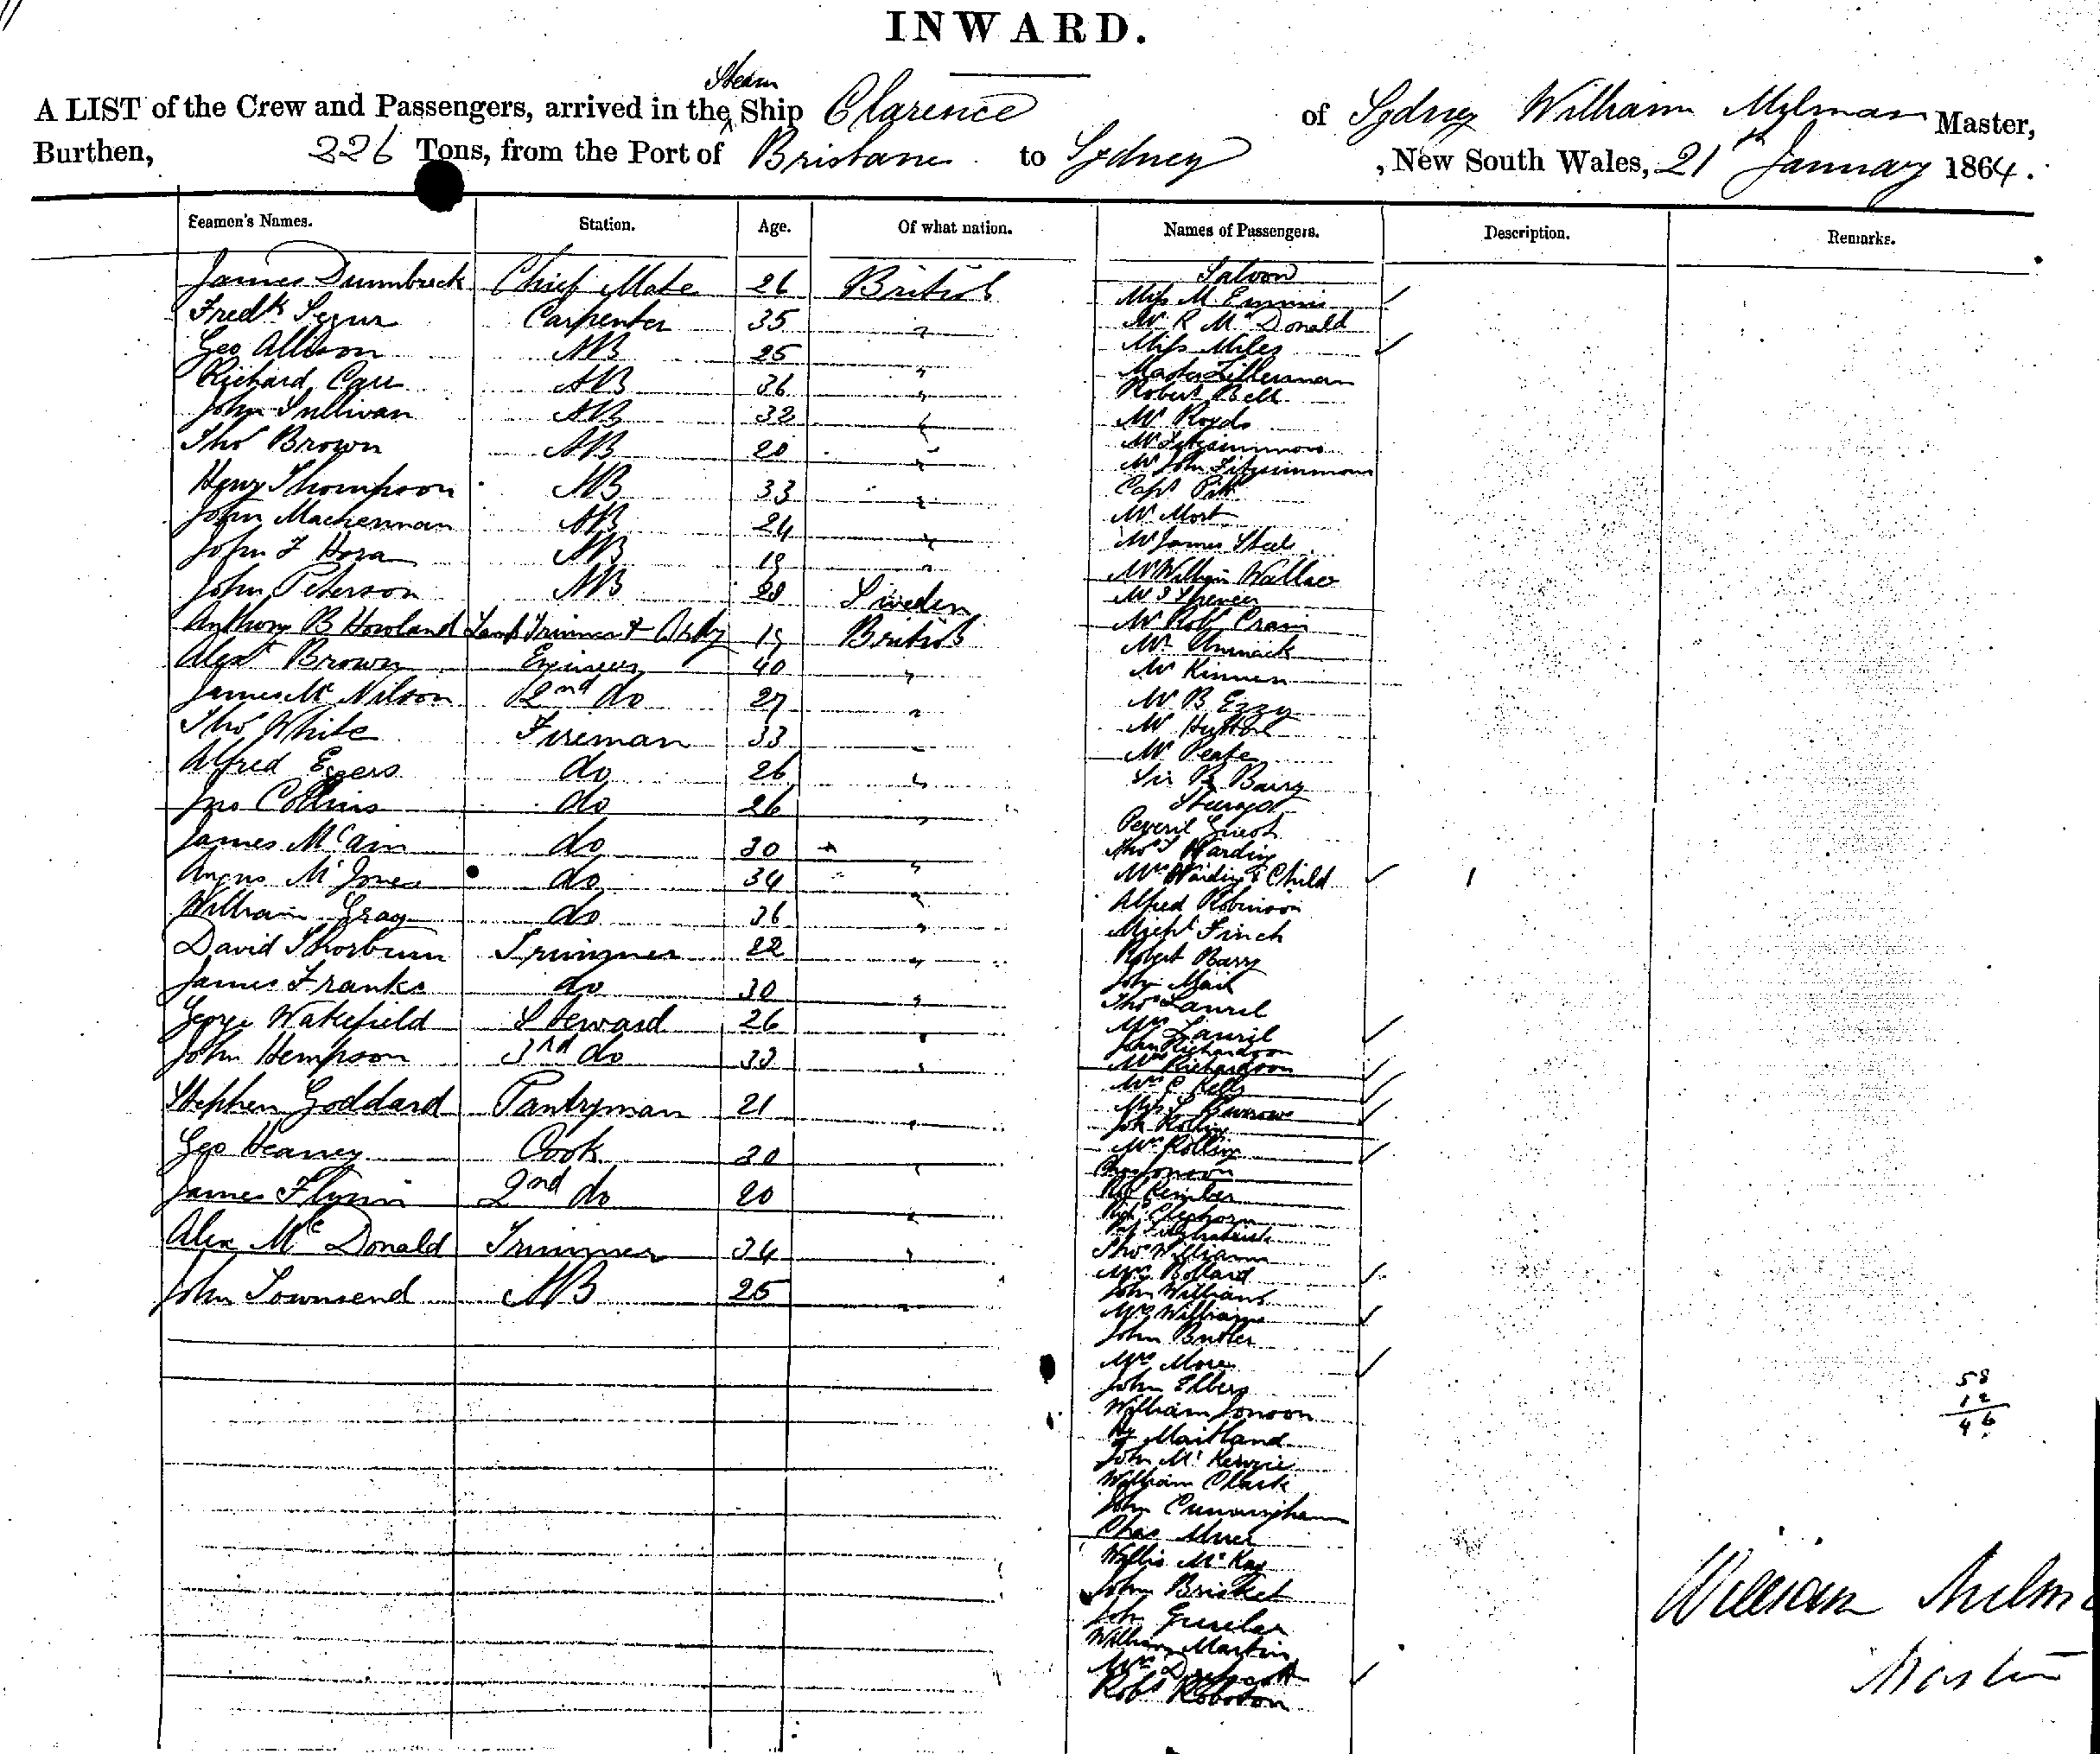 INWARD.
A LIST of the Crew and Passengers, arrived in the Steam Ship Clarence of Sydney William Milman Master,
Burthen, 226 Tons, from the Port of Brisbane to Sydney, New South Wales, 21st January 1864.
Seamen's Names. Station. Age. Of what nation. Names of Passengers. Description. Remarks.
James Dumbreck Chief Mate 26 British
Fredk Segur Carpenter 35 "
Geo Allison AB 25 "
Richard Carr AB 36 "
John Sullivan AB 32 "
Thos Brown AB 20 "
Henry Thompson AB 33 "
John Mackennan AB 24 "
John F Hora AB 19 "
John Peterson AB 28 Sweden
Anthony B Howland Lamp Trimmer & 19 British
Alexr Brown Engineer 40 "
James Mc Nilson 2nd do 27 "
Thos White Fireman 33 "
Alfred Eggers do 26 "
Jno Collins do 26 "
James McCain do 30 "
Angus Mc Jones do 34 "
William Gray do 36 "
David Thorburn Trimmer 22 "
James Franks do 30 "
George Wakefield Steward 26 "
John Hempson 3rd do 33 "
Stephen Goddard Pantryman 21 "
Geo Heaney Cook 30 "
James Flynn 2nd do 20 "
Alex Mc Donald Trimmer 34 "
John Townsend AB 25 "
Saloon
Miss M. Emmis
Mr R McDonald
Miss Miles
Master Zillerman
Robert Bell
Mr Royds
Mr Fitzsimmons
Mr John Fitzsimmons
Capt Pitt
Mr Mort
Mr James Steele
Mr William Wallace
Mr J Spencer
Mr Robt Cram
Mr Ummack
Mr Kinnen
Mr B Ezzy
Mr Hutton
Mr Peate
Sir R Barry
Sturgot
Peveril Guest
Thos J Harding
Mrs Harding & Child
Alfred Robinson
Michl Finch
Robert Barry
John Mack
Thos Lauril
Mrs Lauril
John Richardson
Mrs Richardson
Mrs C Kelly
Miss L Burrows
Joh Rolling
Mrs Rolling
Chas Jonson
Robt Kimber
Richd Cleghorn
Pat Fitzpatrick
Thos Williams
Mrs Bollard
John Williams
Mrs Williams
John Butler
Mrs More
John Elbers
William Jonson
Hy Maitland
John McKenzie
William Clark
John Cunningham
Chas
Wyllis McKay
John Brisket
Joh
William Martin
Mrs
Robt Robson
58
12
46
William Milman
Master